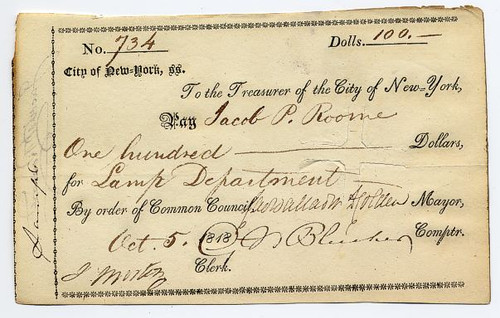 No. 734 Dolls. 100.—
City of New-York, ss.
To the Treasurer of the City of New-York,
Pay Jacob P. Roome
One hundred Dollars,
for Lamp Department
By order of Common Council, Cadwallader D Colden Mayor,
Oct. 5. 1818 J N Bleecker Comptr.
J Morton Clerk.